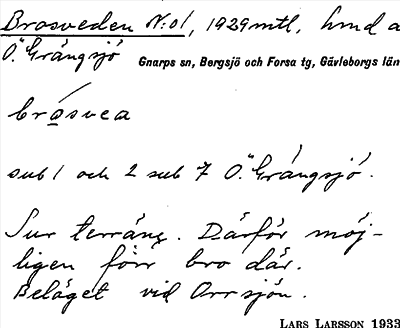 Brosveden N:o 1, 1929 mtl, hmd a
Ö. Grängsjö Gnarps sn, Bergsjö och Forsa tg, Gävleborgs län
brósvea
sub 1 och 2 sub 7 Ö. Grángsjö.
Sur terräng. Därför möj-
ligen förr bro där.
Beläget vid Orrsjön.
LARS LARSSON 1933